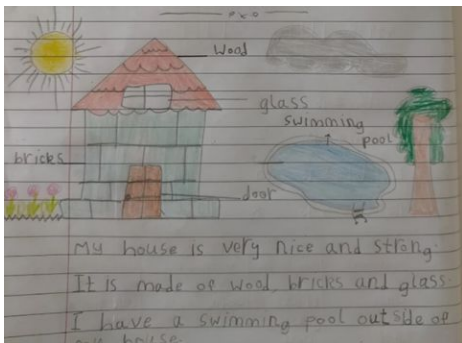 wood
glass
swimming
pool
bricks
door
My house is very nice and strong.
It is made of wood, bricks and glass.
I have a swimming pool outside of
my house